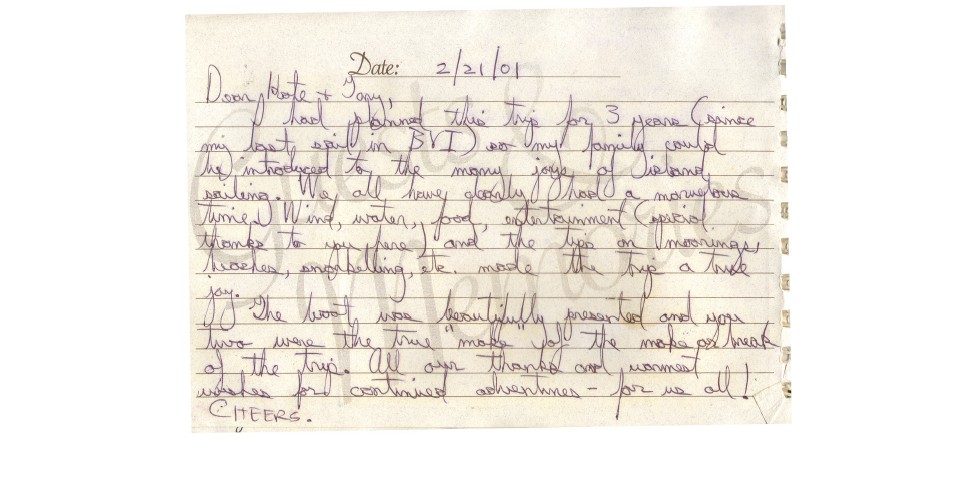 Date: 2/21/01
Dear Kate & Tony,
I had planned this trip for 3 years (since
my last sail in BVI) so my family could
be introduced to the many joys of island
sailing. We all have clearly had a marvelous
time. Wind, water, food, entertainment (special
thanks to you here) and the tips on moorings,
beaches, snorkelling, etc. made the trip a true
joy.
The boat was beautifully presented and you
two were the true "make" of the make or break
of the trip. All our thanks and warmest
wishes for continued adventures - for us all!
CHEERS.
Guests &
Memories